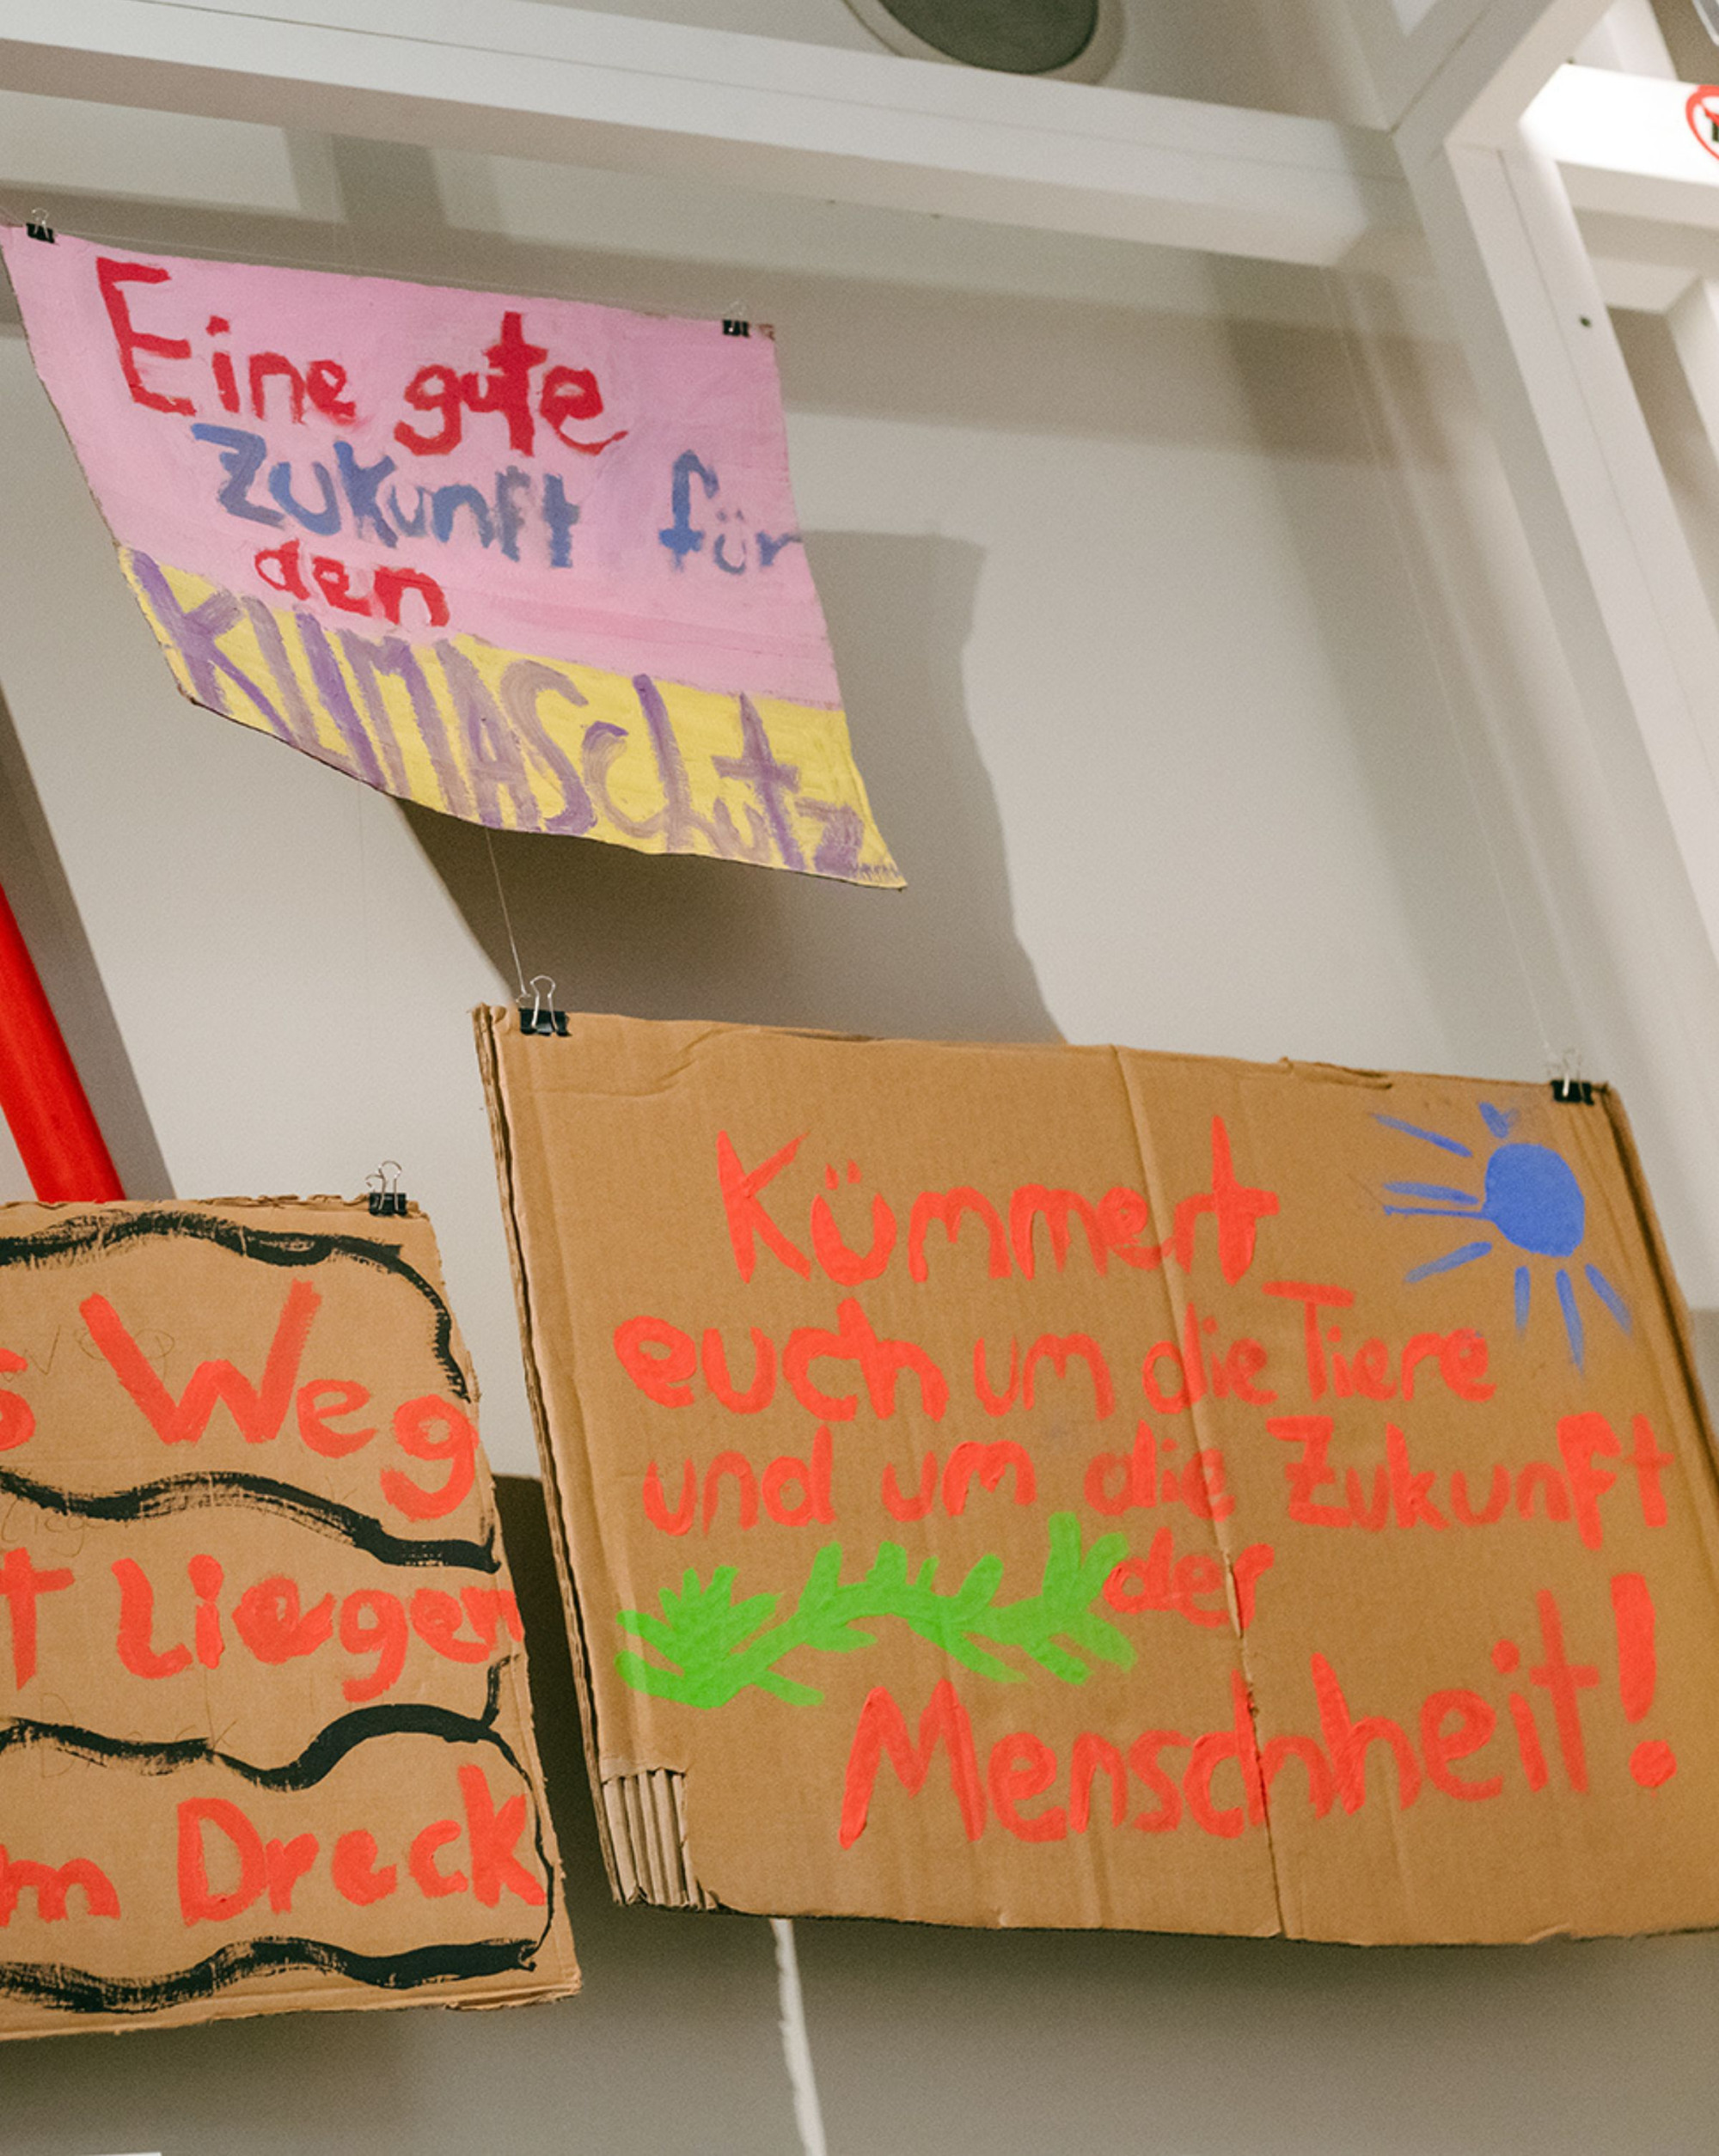 Eine gute
Zukunft für
den
KLIMASchutz
Kümmert
euch um die Tiere
und um die Zukunft
der
Menschheit!
s Weg
t Liegen
m Dreck